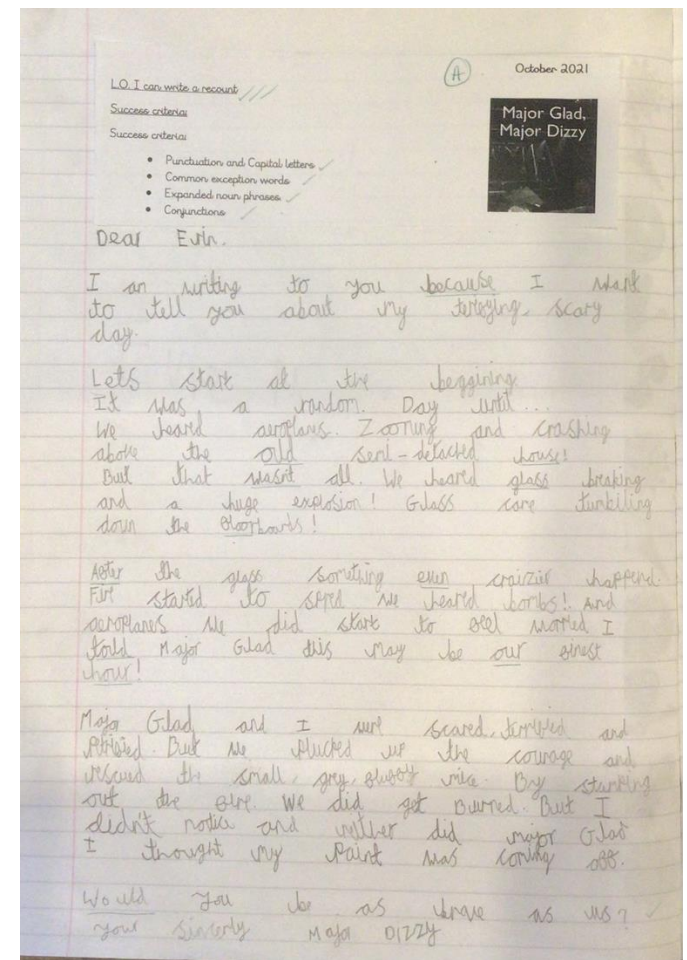 October 2021
A
L.O. I can write a recount
Success criteria:
Success criteria:
Major Glad,
Major Dizzy
• Punctuation and Capital letters
• Common exception words
• Expanded noun phrases
• Conjunctions
Dear Evrin.
I an writing to you because I want
to tell you about my terefying, scary
day.
Lets start at the beggining
It was a random. Day until ...
We heared aeroplanes. Zooming and crashing
above the ould semi-detached house!
But that wasn't all. We heared glass breaking
and a huge explosion! Glass came tumbiling
down the floorboards!
After the glass somthing even craizier happend.
Fire started to spred we heared bombs! And
aeroplanes we did start to feel worried I
tould Major Glad this may be our finest
hour!
Major Glad and I wure scared, terrified and
Petrified. But we plucked up the courage and
rescued the small, grey, fluffy mice. By stumping
out the fire. We did get Burned. But I
didn't notice and neither did major Glad
I thought my Paint was coming off.
Would you be as brave as us?
your sincerly Major DIZZY